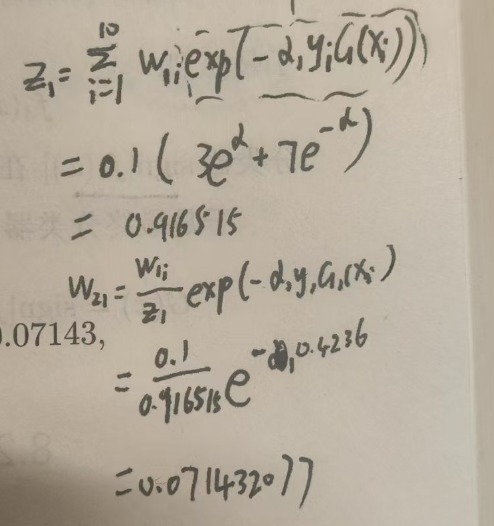 Z₁ = Σ_{i=1}^{10} W₁ᵢ exp(-α₁yᵢG₁(xᵢ))
= 0.1 ( 3e^α + 7e^{-α} )
= 0.916515
W₂₁ = W₁ᵢ/Z₁ exp(-α₁y₁G₁(xᵢ)
0.07143,
= 0.1/0.916515 e^{-0.4236}
= 0.071432077